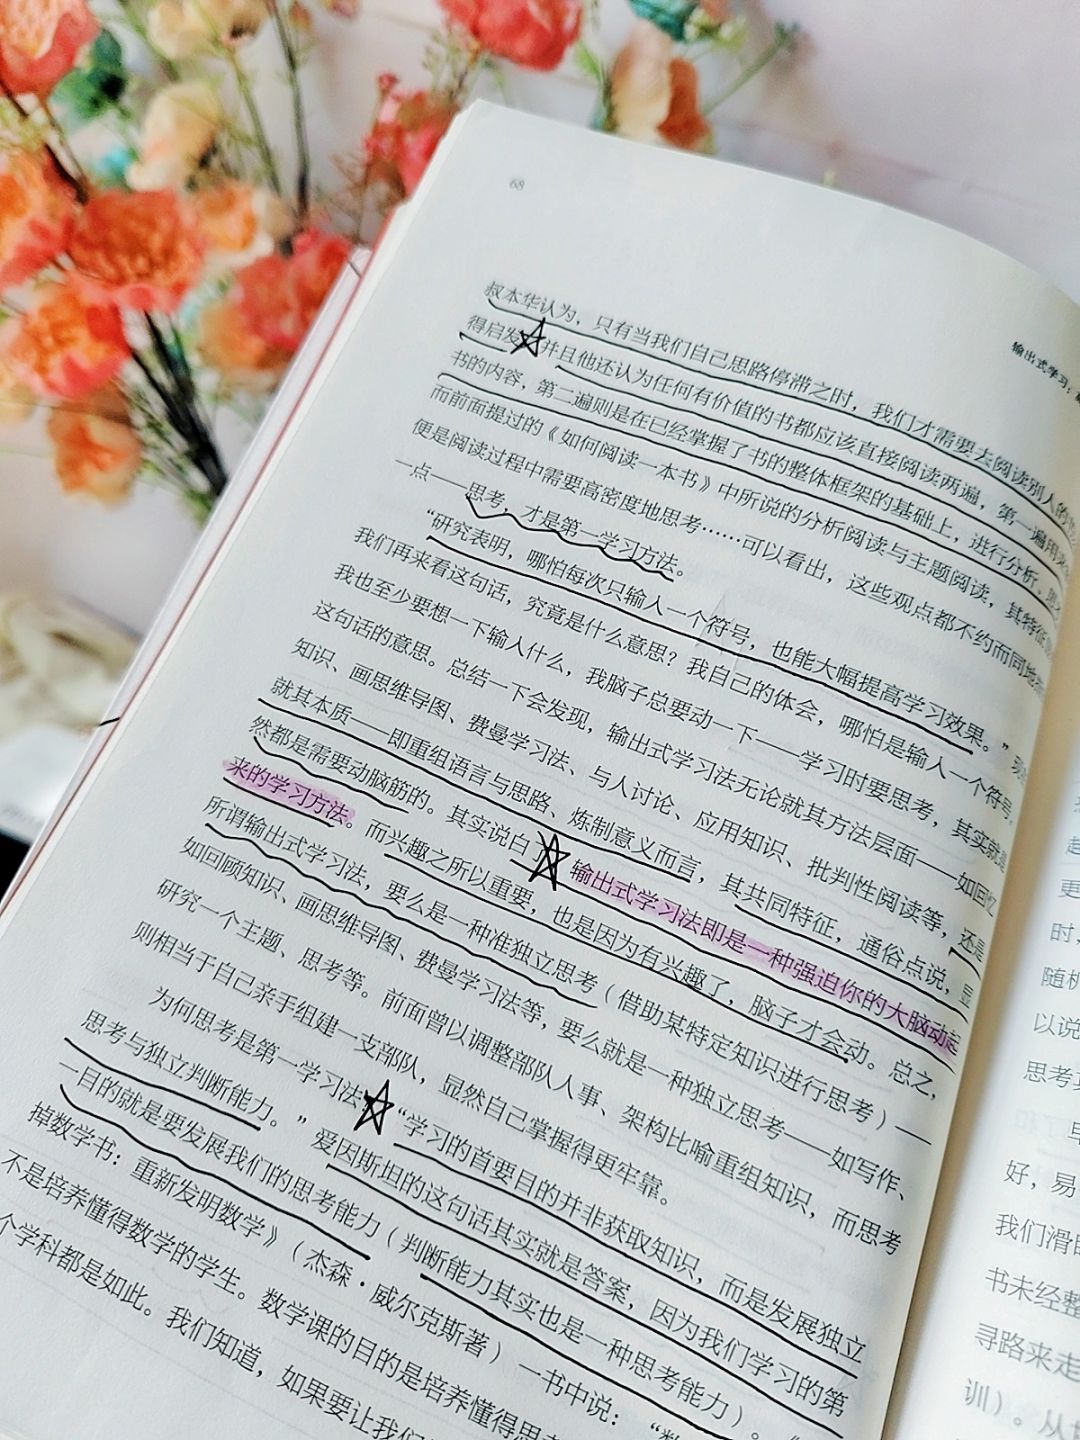 68
输出式学习：
叔本华认为，只有当我们自己思路停滞之时，我们才需要去阅读别人的
得启发 并且他还认为任何有价值的书都应该直接阅读两遍，第一遍用来
书的内容，第二遍则是在已经掌握了书的整体框架的基础上，进行分析、
而前面提过的《如何阅读一本书》中所说的分析阅读与主题阅读，其特征
便是阅读过程中需要高密度地思考……可以看出，这些观点都不约而同地
一点——思考，才是第一学习方法。
“研究表明，哪怕每次只输入一个符号，也能大幅提高学习效果。”
我们再来看这句话，究竟是什么意思？我自己的体会，哪怕是输入一个符号，
我也至少要想一下输入什么，我脑子总要动一下——学习时要思考，其实就是
这句话的意思。总结一下会发现，输出式学习法无论就其方法层面——如回忆
知识、画思维导图、费曼学习法、与人讨论、应用知识、批判性阅读等，还是
就其本质——即重组语言与思路、炼制意义而言，其共同特征，通俗点说，显
然都是需要动脑筋的。其实说白 输出式学习法即是一种强迫你的大脑动起
来的学习方法。而兴趣之所以重要，也是因为有兴趣了，脑子才会动。总之，
所谓输出式学习法，要么是一种准独立思考（借助某特定知识进行思考）——
如回顾知识、画思维导图、费曼学习法等，要么就是一种独立思考——如写作、
研究一个主题、思考等。前面曾以调整部队人事、架构比喻重组知识，而思考
则相当于自己亲手组建一支部队，显然自己掌握得更牢靠。
为何思考是第一学习法 “学习的首要目的并非获取知识，而是发展独立
思考与独立判断能力。”爱因斯坦的这句话其实就是答案，因为我们学习的第
一目的就是要发展我们的思考能力（判断能力其实也是一种思考能力）。
掉数学书：重新发明数学》（杰森·威尔克斯著）一书中说：“
不是培养懂得数学的学生。数学课的目的是培养懂得思
个学科都是如此。我们知道，如果要让我们
更
时，
随机
以说
思考
好，易
我们滑
书未经整
寻路来走
训）。从